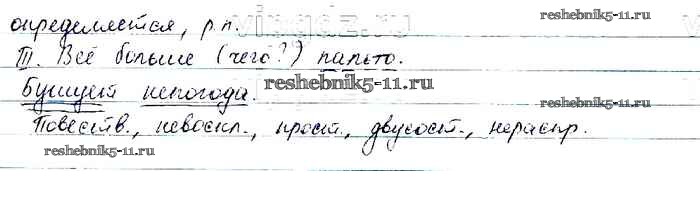 определяется, р.п.
reshebnik5-11.ru
III. Всё больше (чего?) пальто.
reshebnik5-11.ru
Бушует непогода.
Повеств., невоскл., прост., двусост., нераспр.
reshebnik5-11.ru
reshebnik5-11.ru